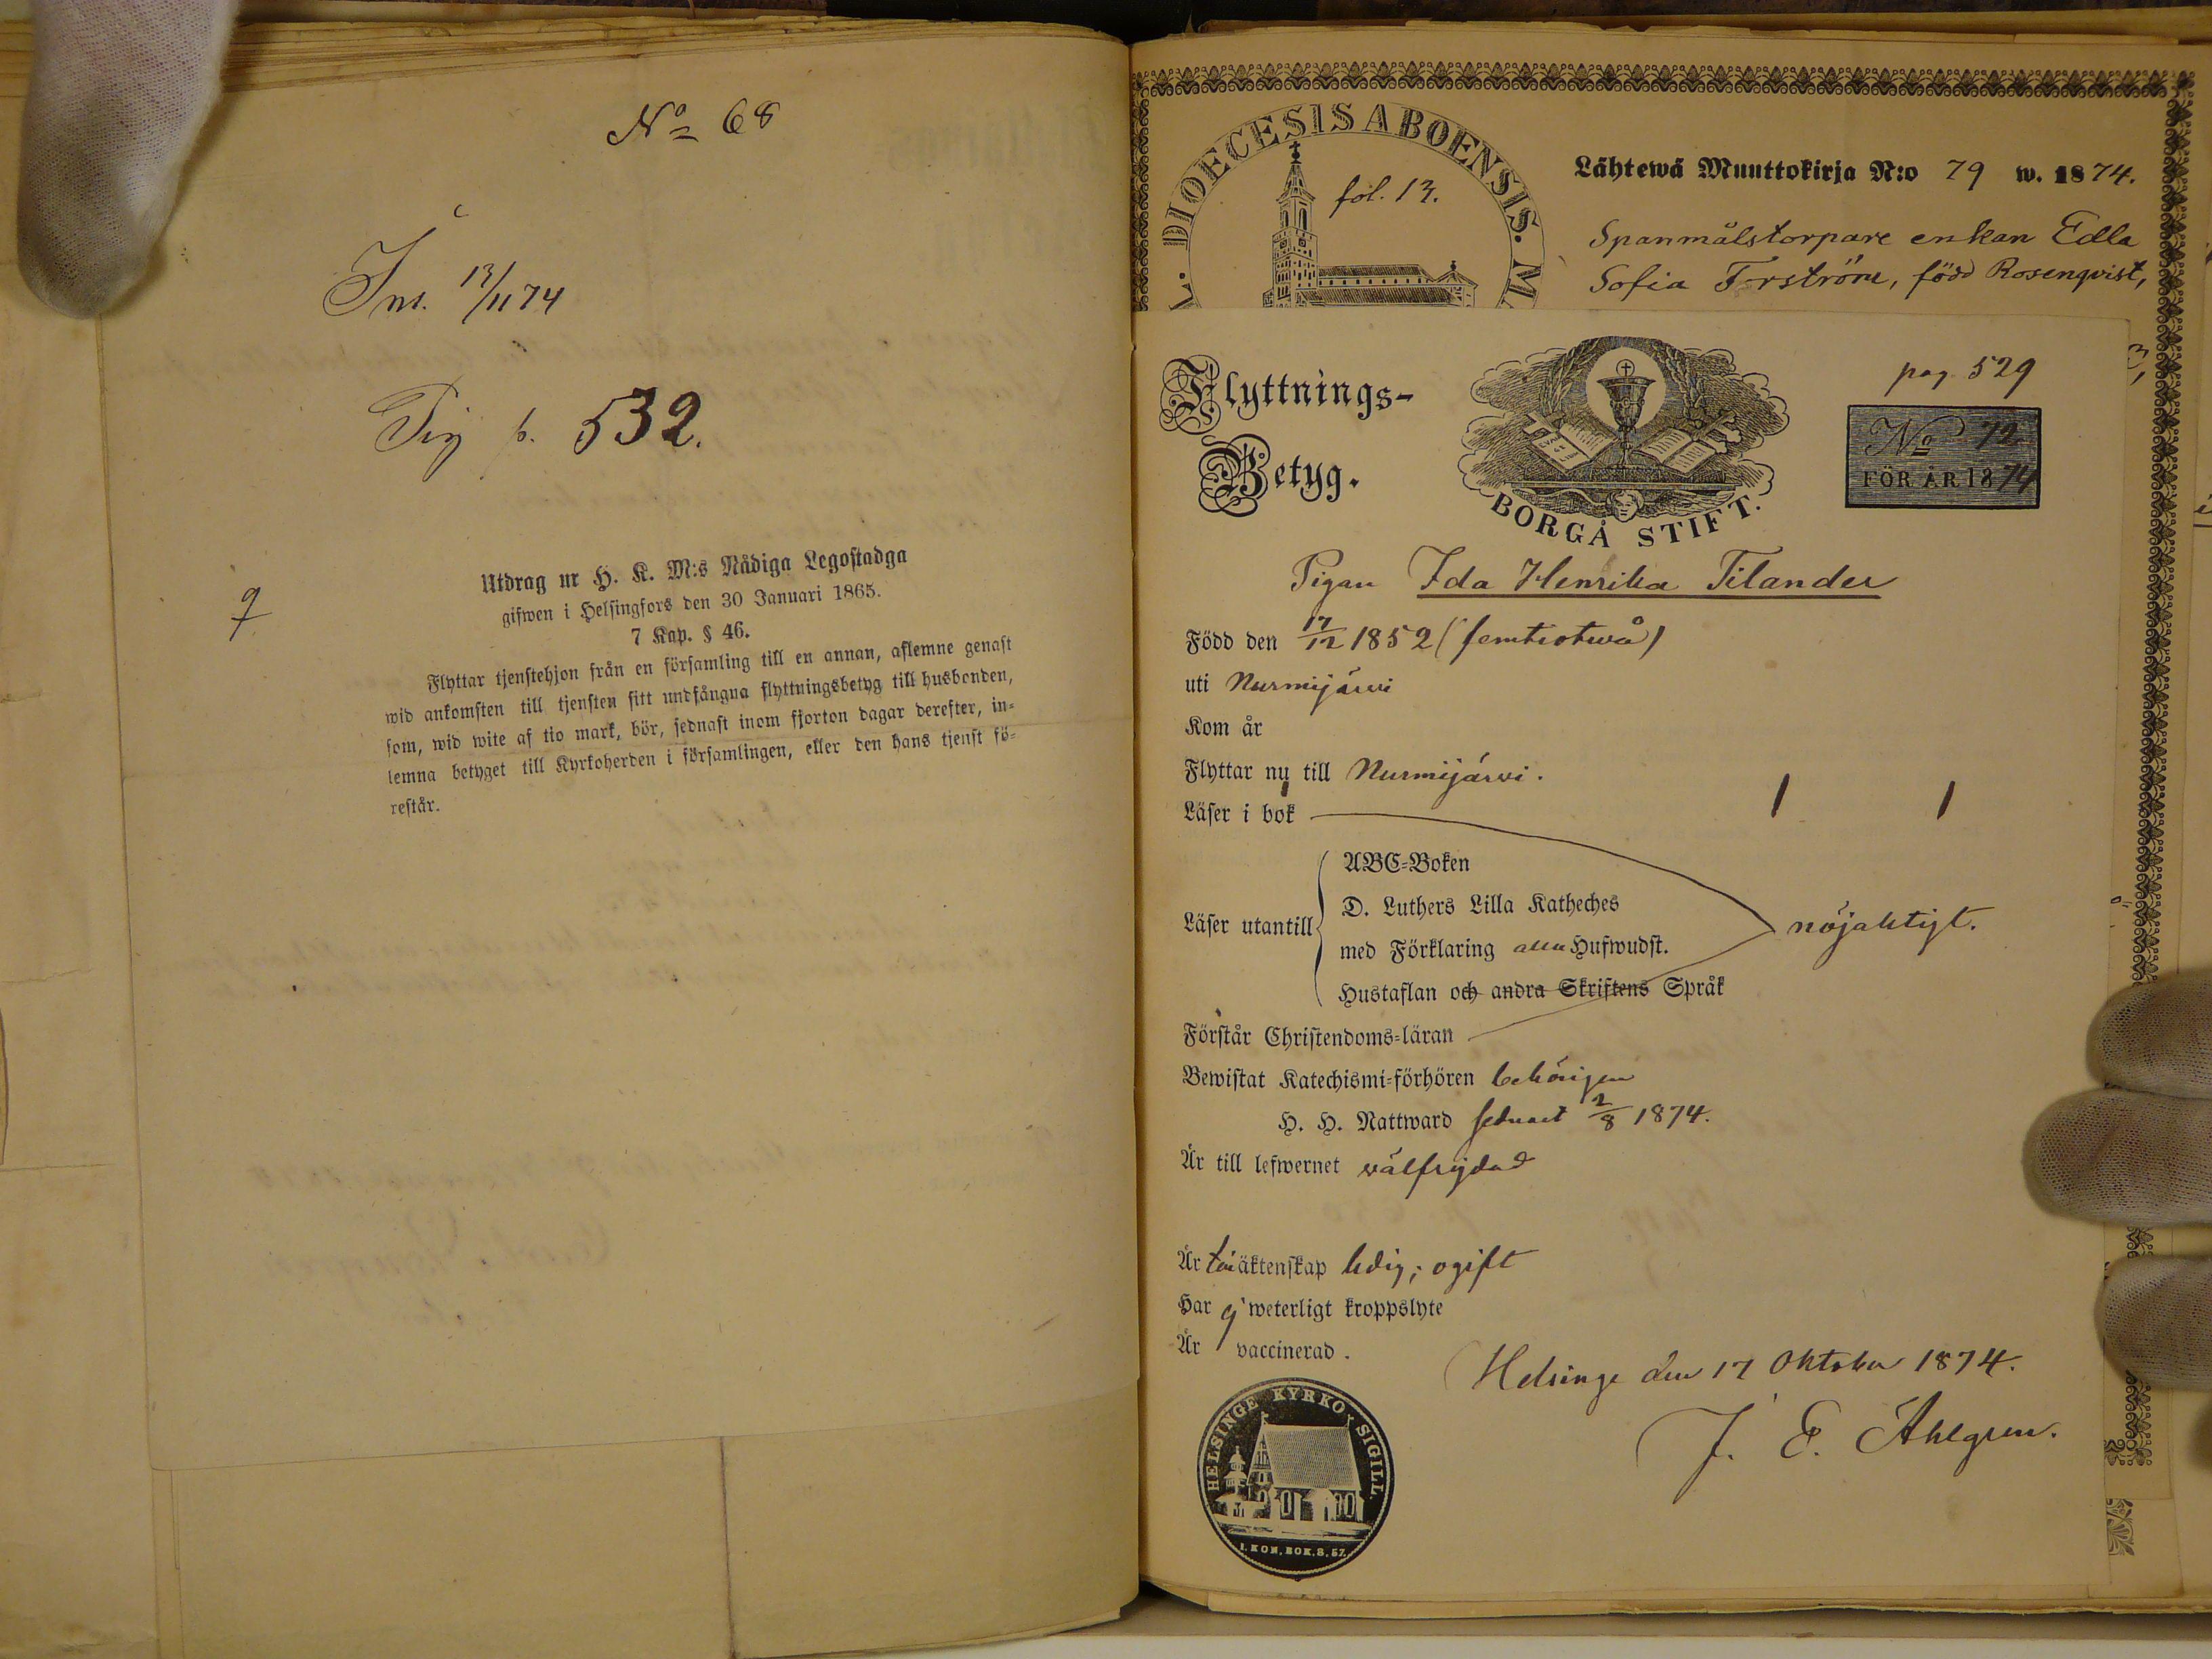 No 68
Ins. 13/11 74
Pig p. 532.
Utdrag ur H. K. M:s Nådiga Legostadga
gifwen i Helsingfors den 30 Januari 1865.
7 Kap. § 46.
Flyttar tjenstehjon från en församling till en annan, aflemne genast
wid ankomsten till tjensten sitt undfångna flyttningsbetyg till husbonden,
som, wid wite af tio mark, bör, sednast inom fjorton dagar derefter, in-
lemna betyget till Kyrkoherden i församlingen, eller den hans tjenst fö-
restår.
DIOECESIS ABOENSIS.
fol. 13.
Lähtewä Muuttokirja N:o 79 w. 1874.
Spanmålstorpare enkan Edla
Sofia Forström, född Rosenqvist,
Flyttnings-
Betyg.
BORGÅ STIFT.
pag. 529
No 72.
FÖR ÅR 1874
Pigan Ida Henrika Tilander
Född den 17/12 1852 (femtiotwå)
uti Nurmijärwi
Kom år
Flyttar nu till Nurmijärwi.
Läser i bok
Läser utantill
ABC-Boken
D. Luthers Lilla Katheches
med Förklaring allm Hufwudst.
Hustaflan och andra Skriftens Språk
nöjaktigt.
Förstår Christendoms-läran
Bewistat Katechismi-förhören behörigen
H. H. Nattward sednast 2/8 1874.
Är till lefwernet wälfrejdad
Är till äktenskap ledig; ogift
Har ej weterligt kroppslyte
Är vaccinerad.
Helsinge den 17 Oktober 1874.
J. E. Åhlgren.
HELSINGE KYRKO SIGILL.
1. KON. BOK. 8, 57.